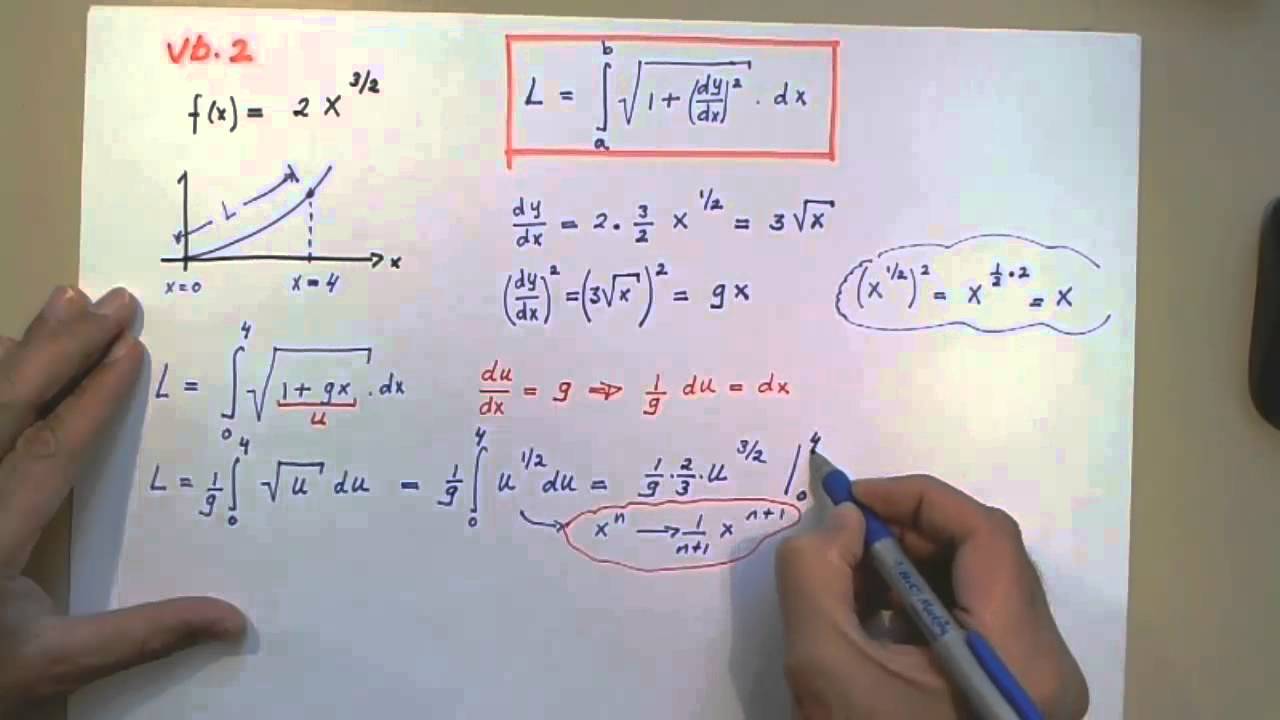 vb. 2
f(x) = 2 x^{3/2}
L = ∫_a^b √(1 + (dy/dx)^2) · dx
L
x
x=0 x=4
dy/dx = 2 · 3/2 x^{1/2} = 3√x
(dy/dx)^2 = (3√x)^2 = 9x
(x^{1/2})^2 = x^{1/2 · 2} = x
L = ∫_0^4 √(1 + 9x) · dx
u
du/dx = 9 ⇒ 1/9 du = dx
L = 1/9 ∫_0^4 √u du = 1/9 ∫_0^4 u^{1/2} du = 1/9 · 2/3 · u^{3/2} |_0^4
x^n → 1/(n+1) x^{n+1}